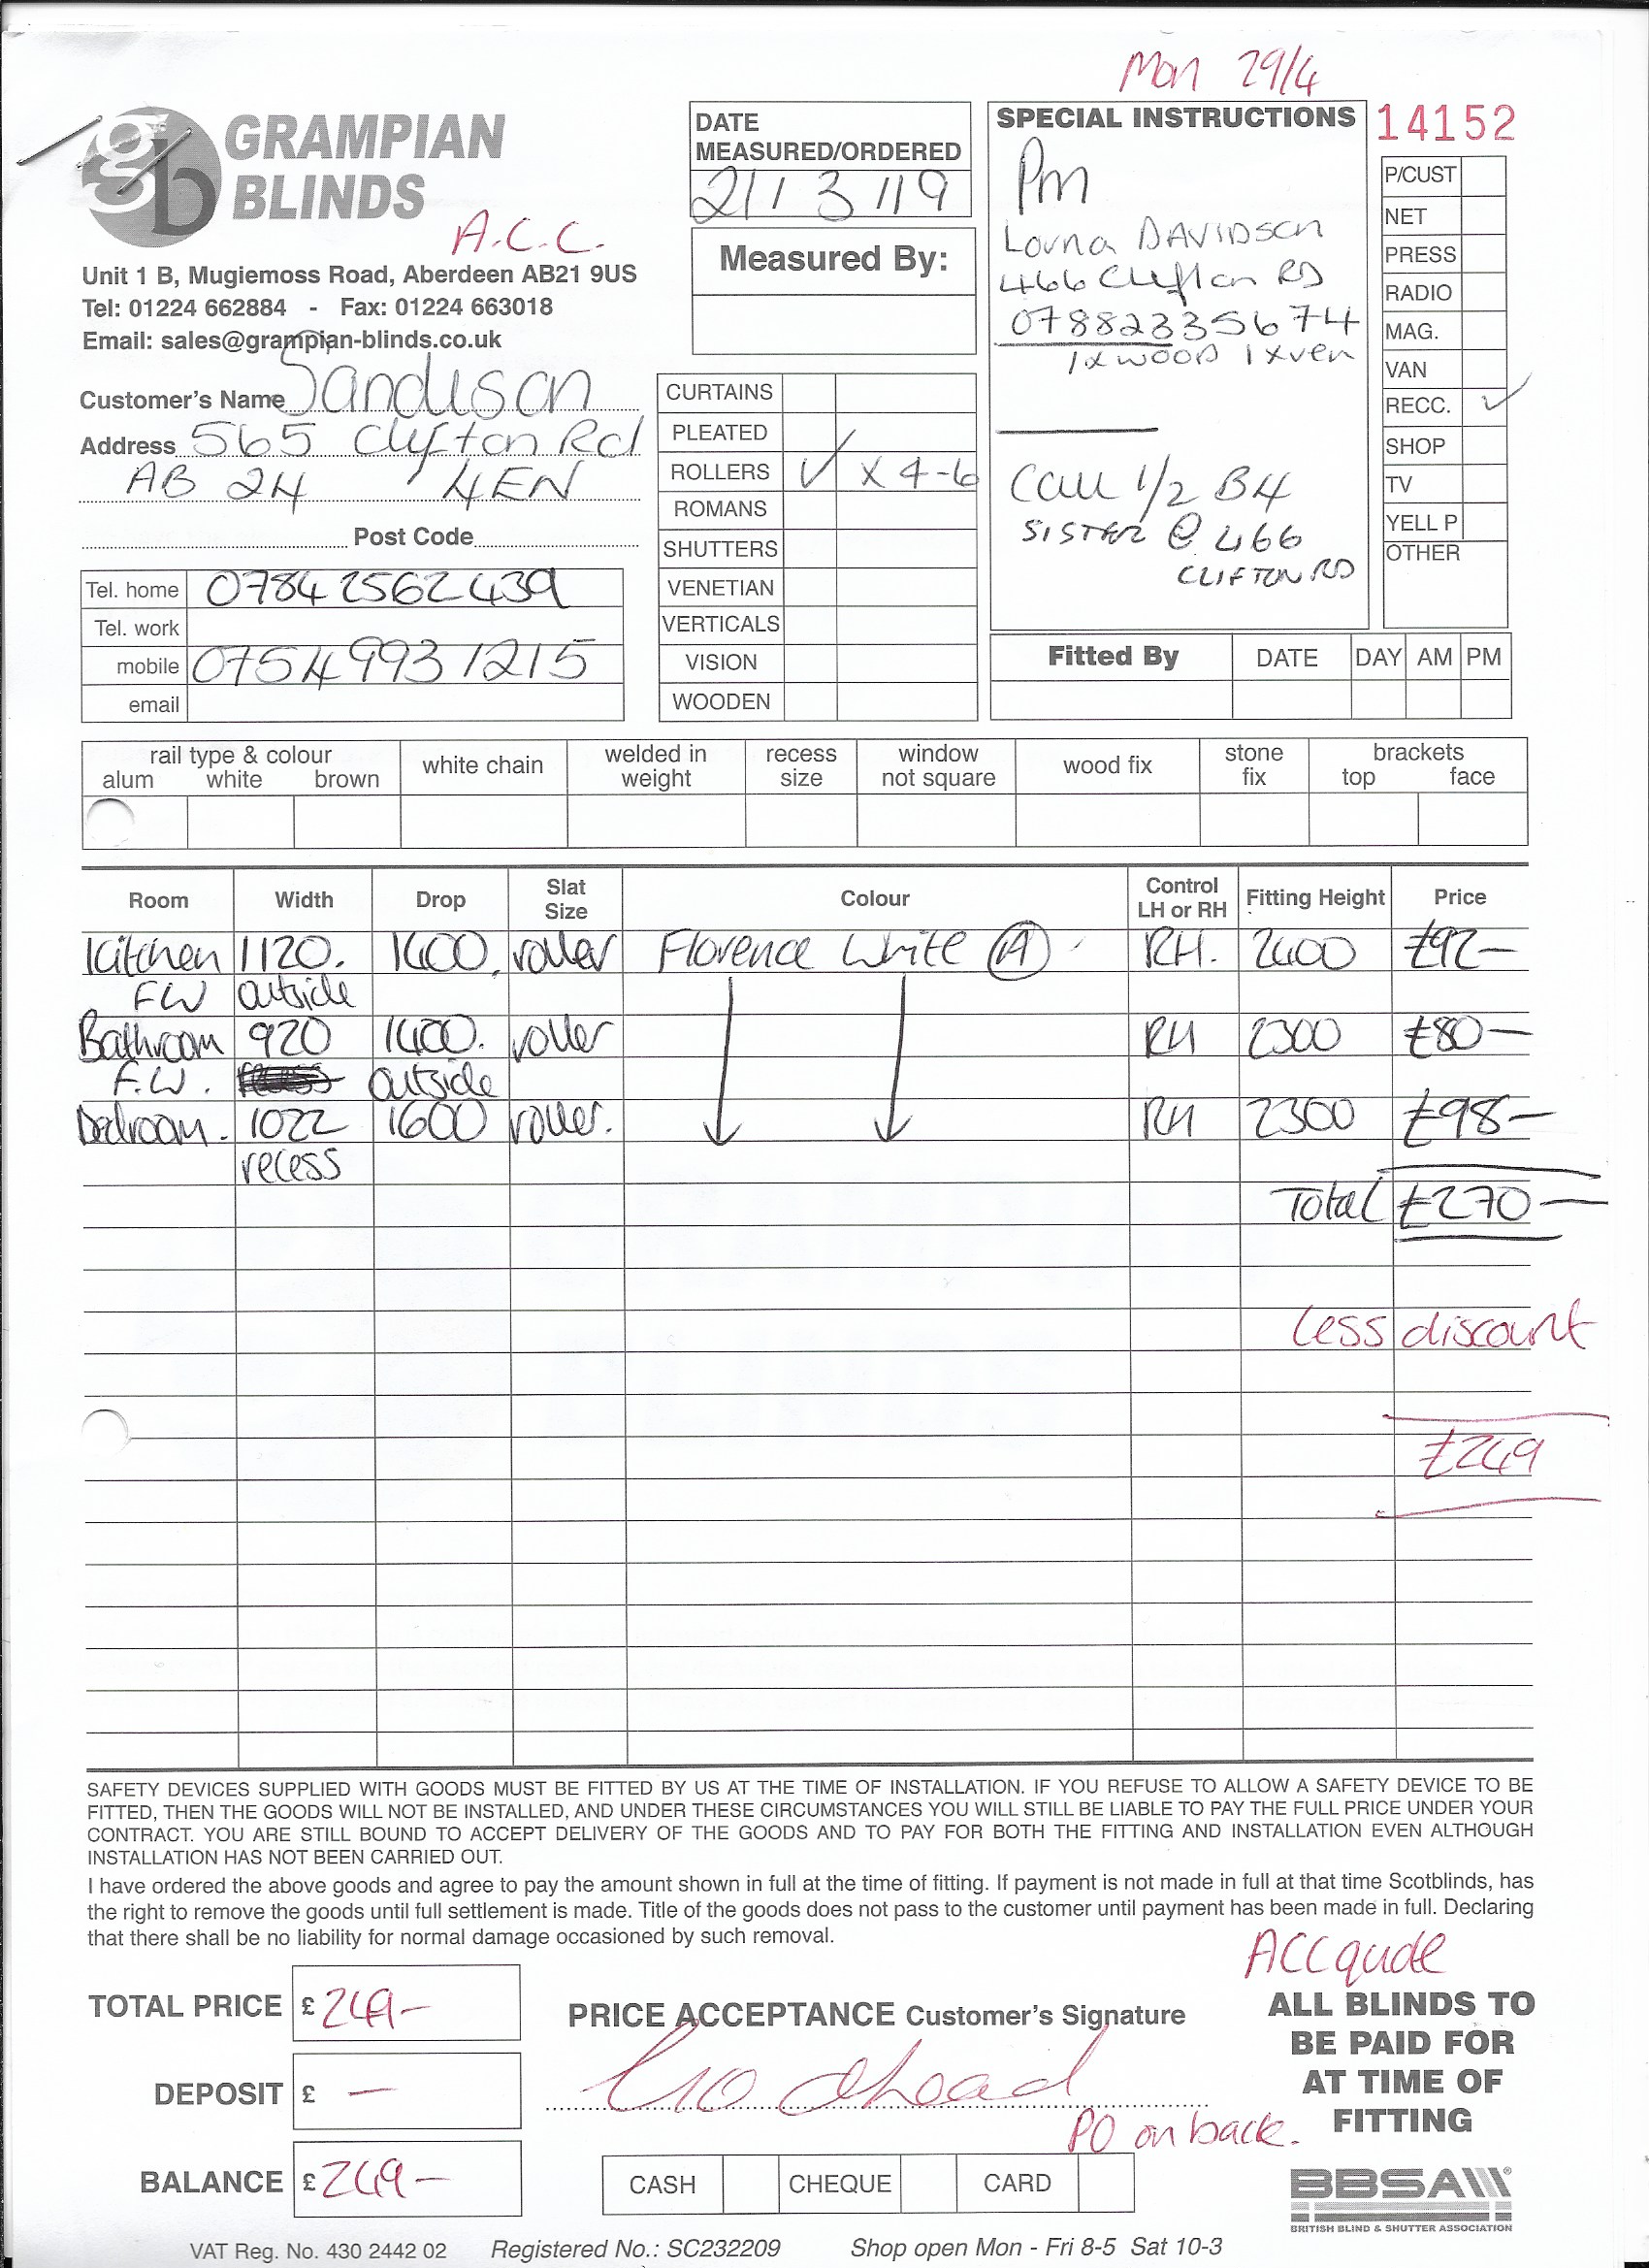 Mon 29/4
GRAMPIAN
BLINDS
A.C.C.
Unit 1 B, Mugiemoss Road, Aberdeen AB21 9US
Tel: 01224 662884 - Fax: 01224 663018
Email: sales@grampian-blinds.co.uk
Customer's Name Sandison
Address 565 Clifton Rd
AB 24 4EN
Post Code
Tel. home 07842562439
Tel. work
mobile 07549931215
email
DATE
MEASURED/ORDERED
21/3/19
Measured By:
CURTAINS
PLEATED
ROLLERS ✓ x 4-6
ROMANS
SHUTTERS
VENETIAN
VERTICALS
VISION
WOODEN
SPECIAL INSTRUCTIONS
Pm
Lorna DAVIDSON
466 Clifton RD
07882335674
1x WOOD 1xven
Call 1/2 B4
SISTER @ 466
CLIFTON RD
14152
P/CUST
NET
PRESS
RADIO
MAG.
VAN
RECC. ✓
SHOP
TV
YELL P
OTHER
Fitted By DATE DAY AM PM
rail type & colour
alum white brown
white chain
welded in
weight
recess
size
window
not square
wood fix
stone
fix
brackets
top face
Room Width Drop Slat Size Colour Control LH or RH Fitting Height Price
Kitchen 1120. 1600. roller Florence White (A) RH. 2400 £92-
FW outside
Bathroom 920 1400. roller RH 2300 £80-
F.W. outside
Bedroom. 1022 1600 roller. RH 2300 £98-
recess
Total £270-
less discount
£249
SAFETY DEVICES SUPPLIED WITH GOODS MUST BE FITTED BY US AT THE TIME OF INSTALLATION. IF YOU REFUSE TO ALLOW A SAFETY DEVICE TO BE
FITTED, THEN THE GOODS WILL NOT BE INSTALLED, AND UNDER THESE CIRCUMSTANCES YOU WILL STILL BE LIABLE TO PAY THE FULL PRICE UNDER YOUR
CONTRACT. YOU ARE STILL BOUND TO ACCEPT DELIVERY OF THE GOODS AND TO PAY FOR BOTH THE FITTING AND INSTALLATION EVEN ALTHOUGH
INSTALLATION HAS NOT BEEN CARRIED OUT.
I have ordered the above goods and agree to pay the amount shown in full at the time of fitting. If payment is not made in full at that time Scotblinds, has
the right to remove the goods until full settlement is made. Title of the goods does not pass to the customer until payment has been made in full. Declaring
that there shall be no liability for normal damage occasioned by such removal.
TOTAL PRICE £ 249-
DEPOSIT £ —
BALANCE £ 249-
PRICE ACCEPTANCE Customer's Signature
PO on back.
CASH CHEQUE CARD
ACC
ALL BLINDS TO
BE PAID FOR
AT TIME OF
FITTING
BBSA
BRITISH BLIND & SHUTTER ASSOCIATION
VAT Reg. No. 430 2442 02 Registered No.: SC232209 Shop open Mon - Fri 8-5 Sat 10-3